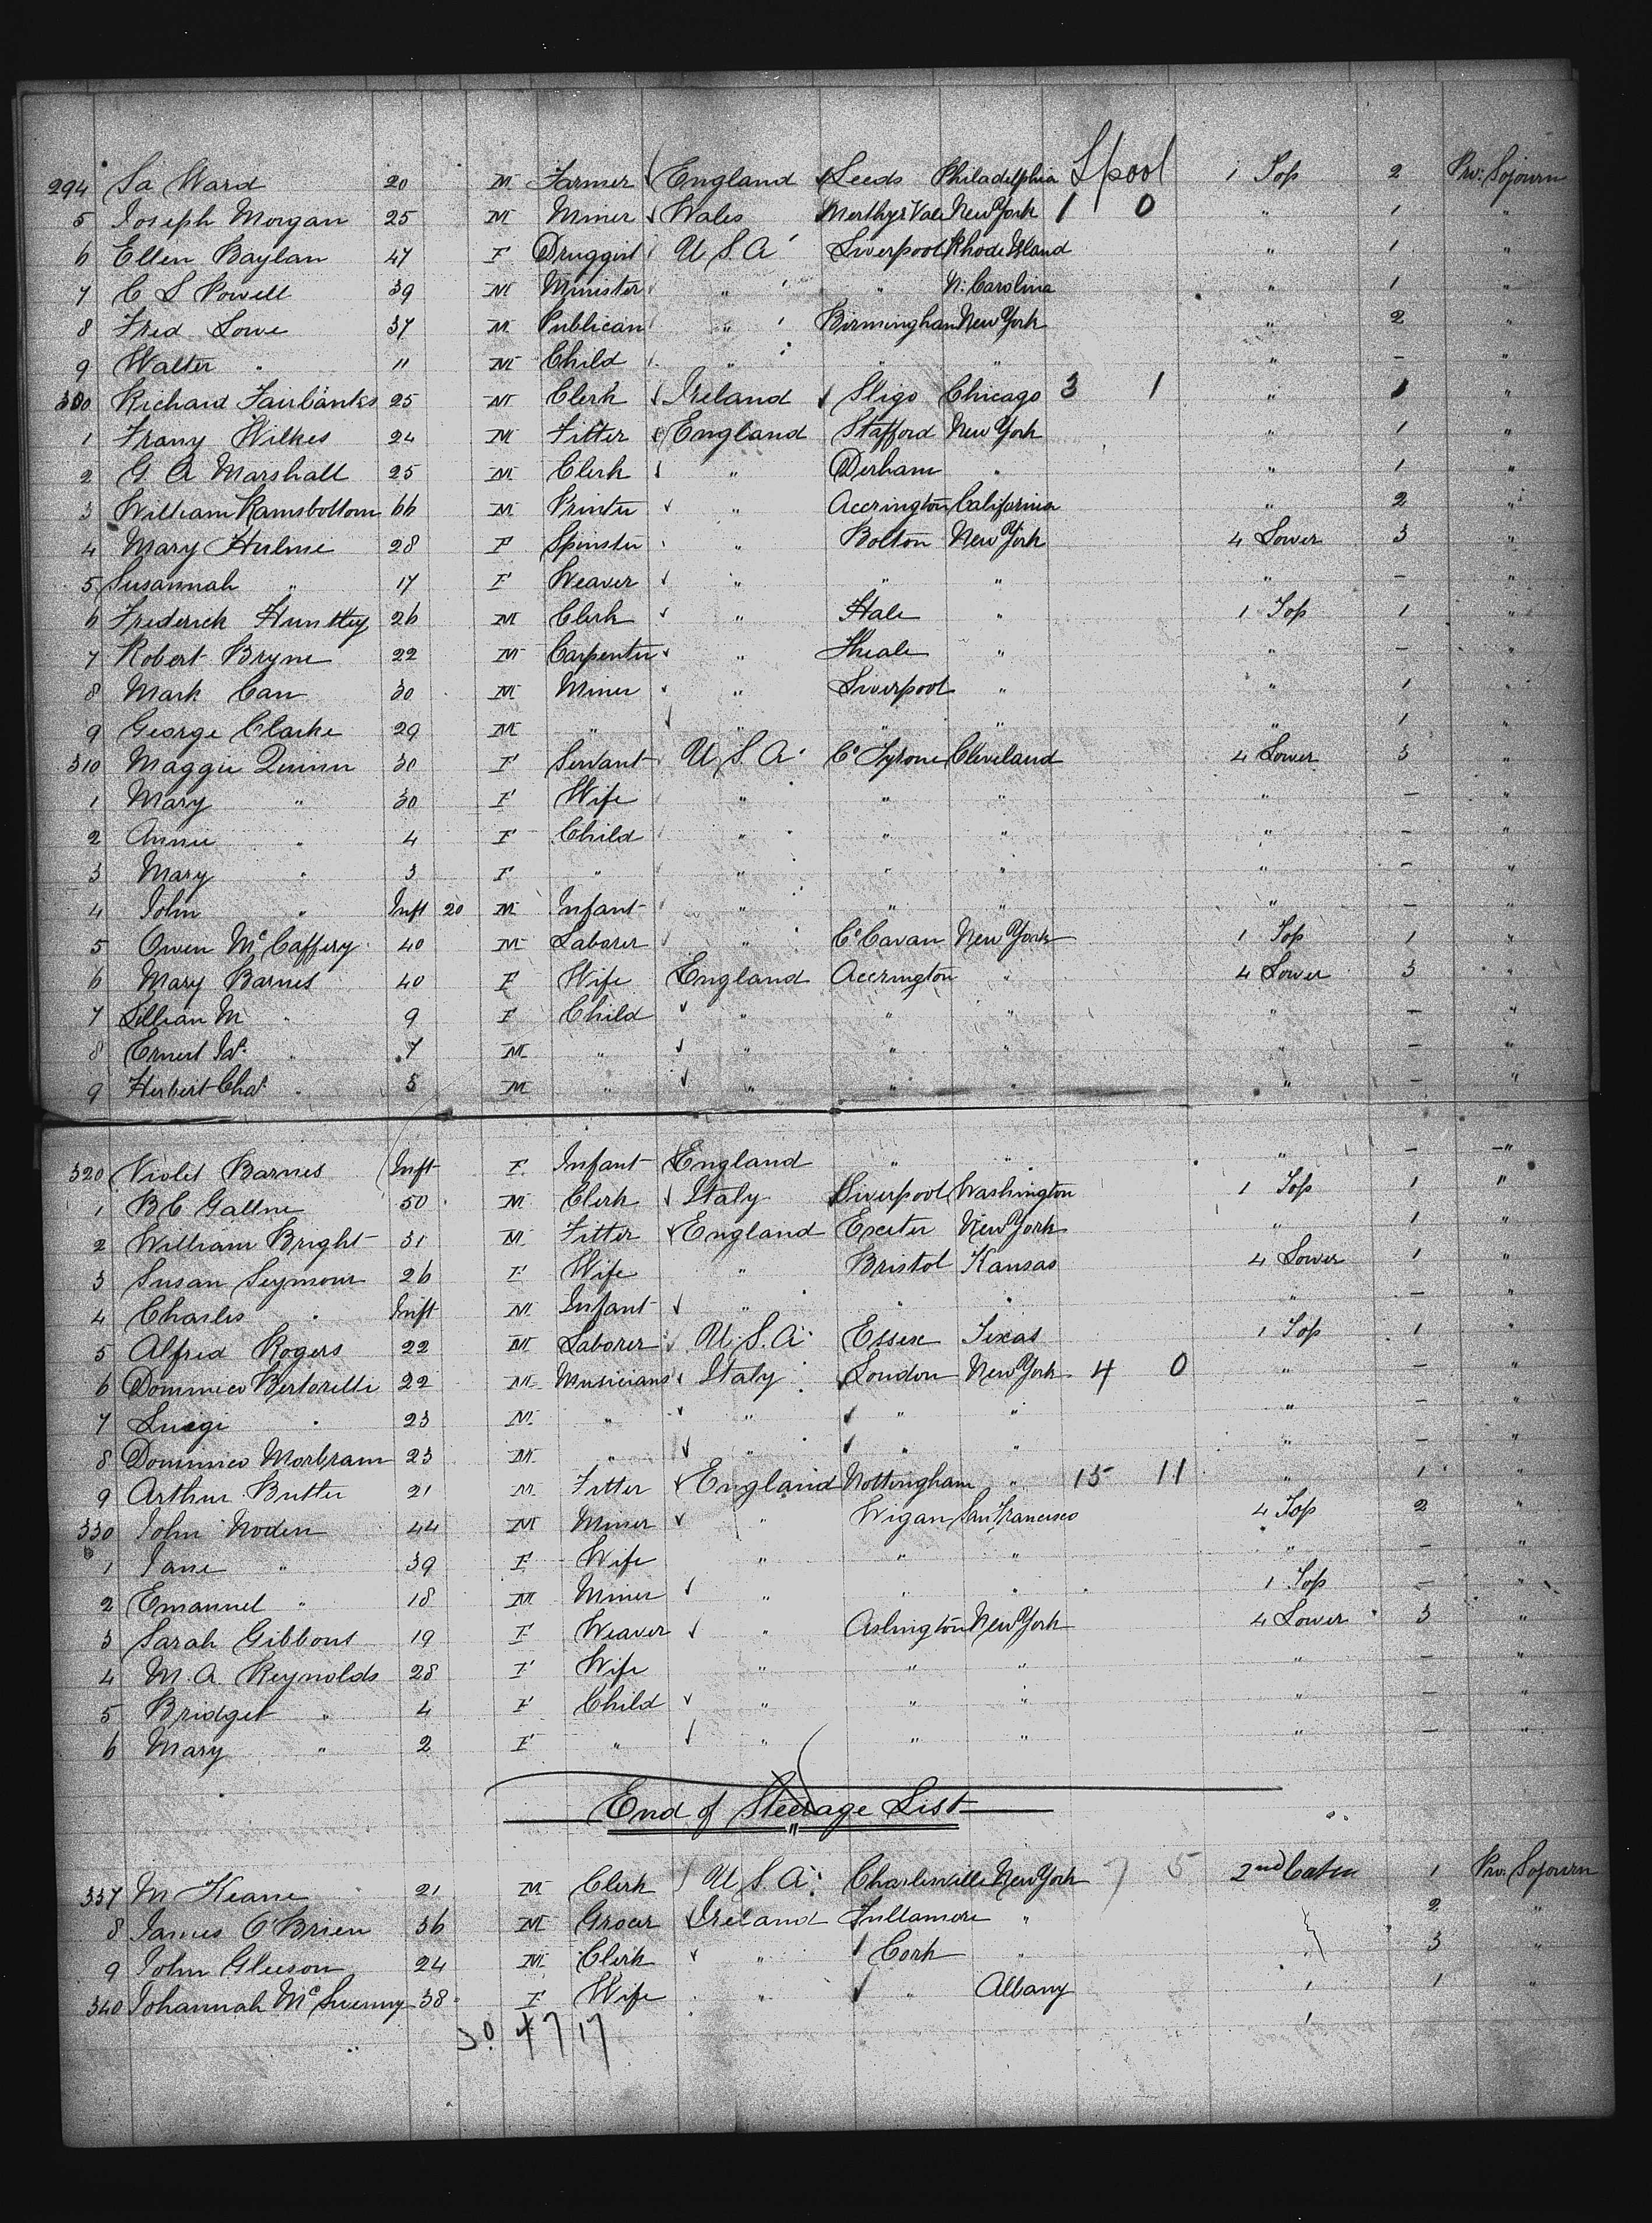 294 Sa Ward 20 M Farmer England Leeds Philadelphia Lpool 1 Top 2 Prv: Sojourn
5 Joseph Morgan 25 M Miner Wales Merthyr Vale New York 1 0 " 1 "
6 Ellen Baylan 47 F Druggist U S. A Liverpool Rhode Island " 1 "
7 C S Powell 39 M Minister " " N: Carolina " 1 "
8 Fred Lowe 37 M Publican " Birmingham New York " 2 "
9 Walter " 11 M Child " " " " - "
300 Richard Fairbanks 25 M Clerk Ireland Sligo Chicago 3 1 " 1 "
1 Frany Wilkes 24 M Fitter England Stafford New York " 1 "
2 G A Marshall 25 M Clerk " Derham " " 1 "
3 William Ramsbottom 66 M Printer " Accrington California " 2 "
4 Mary Hulme 28 F Spinster " Bolton New York 4 Lower 3 "
5 Susannah " 17 F Weaver " " " " - "
6 Frederick Huntley 26 M Clerk " Hale " 1 Top 1 "
7 Robert Bryne 22 M Carpenter " Theale " " - "
8 Mark Carr 30 M Miner " Liverpool " " 1 "
9 George Clarke 29 M " " " " " 1 "
310 Maggie Quinn 30 F Servant U S. A Co Tyrone Cleveland 4 Lower 3 "
1 Mary " 30 F Wife " " " " - "
2 Annie " 4 F Child " " " " - "
3 Mary " 3 F " " " " " - "
4 John " Inft 20 M Infant " " " " - "
5 Owen McCaffery 40 M Laborer " Co Cavan New York 1 Top 1 "
6 Mary Barnes 40 F Wife England Accrington " 4 Lower 3 "
7 Lillian M " 9 F Child " " " " - "
8 Ernest Wd. " 7 M " " " " " - "
9 Herbert Chas " 5 M " " " " " - "
320 Violet Barnes Inft F Infant England " " " - "
1 B C Gallne 50 M Clerk Italy Liverpool Washington 1 Top 1 "
2 William Bright 31 M Fitter England Exeter New York " 1 "
3 Susan Seymour 26 F Wife " Bristol Kansas 4 Lower 1 "
4 Charles " Inft M Infant " " " " - "
5 Alfred Rogers 22 M Laborer U. S. A Essex Texas 1 Top 1 "
6 Dominico Bertorelli 22 M Musicians Italy London New York 4 0 " - "
7 Luegi " 23 M " " " " " - "
8 Dominico Morbram 23 M " " " " " - "
9 Arthur Butter 21 M Fitter England Nottingham " 15 11 " 1 "
330 John Noden 44 M Miner " Wigan San Francisco 4 Top 2 "
1 Jane " 39 F Wife " " " " - "
2 Emanuel " 18 M Miner " " " 1 Top - "
3 Sarah Gibbons 19 F Weaver " Aslington New York 4 Lower 3 "
4 M. A Reynolds 28 F Wife " " " " - "
5 Bridget " 4 F Child " " " " - "
6 Mary " 2 F " " " " " - "
End of Steerage List
337 M Keane 21 M Clerk U S. A Charleville New York 7 5 2nd Cabin 1 Prv: Sojourn
8 James O'Brien 36 M Grocer Ireland Tullamore " 2 "
9 John Gleeson 24 M Clerk " Cork " 3 "
340 Johannah McSweeny 38 F Wife " " Albany 1 "
30 47 17